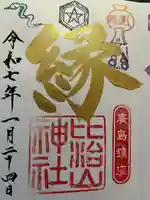 廣島鎮座
縁
比治山
神社
令和七年一月二十四日